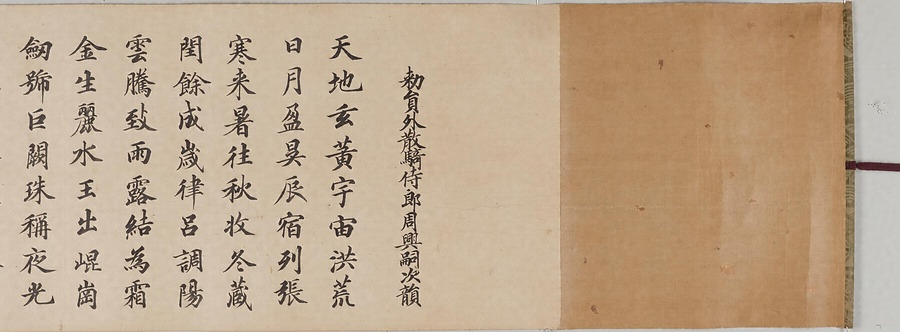 勑員外散騎侍郎周興嗣次韻
天地玄黃宇宙洪荒
日月盈昃辰宿列張
寒来暑往秋收冬藏
閏餘成歲律呂調陽
雲騰致雨露結為霜
金生麗水玉出崐崗
劒號巨闕珠稱夜光